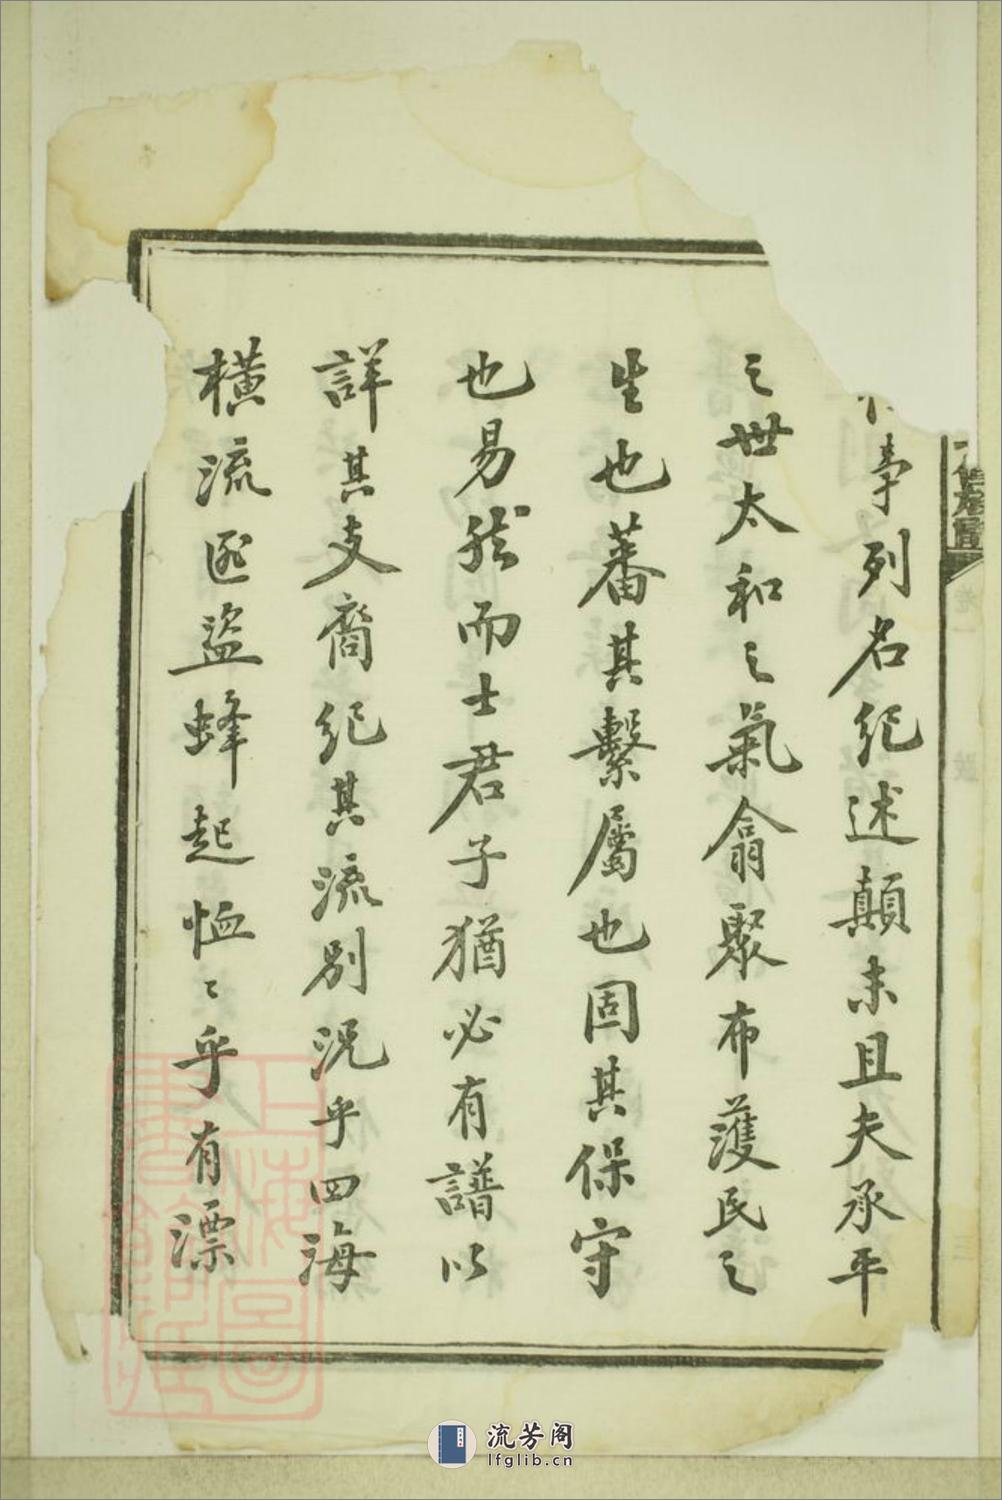 事列名紀述顛末且夫承平
之世太和之氣翕聚布濩民之
生也蕃其繫屬也固其保守
也易然而士君子猶必有譜以
詳其支裔紀其流別況乎四海
橫流逐盜蜂起恤〻乎有漂
上海圖書館藏
流芳阁
lfglib.cn